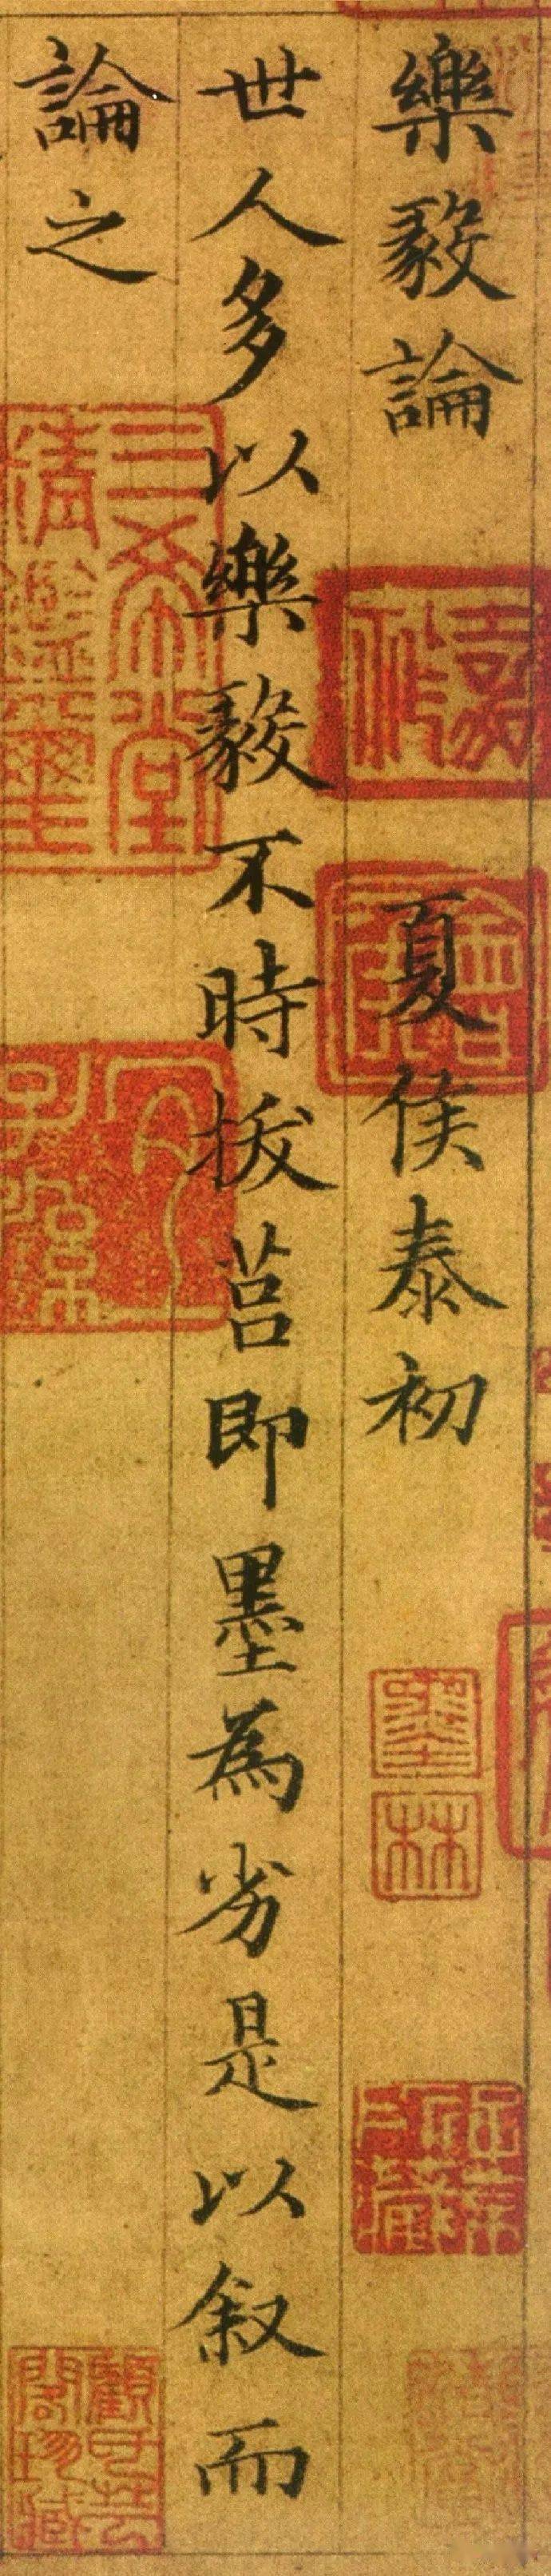 樂毅論 夏侯泰初
世人多以樂毅不時拔莒即墨為劣是以叙而
論之
三希堂精鑑璽
宜子孫
墨林